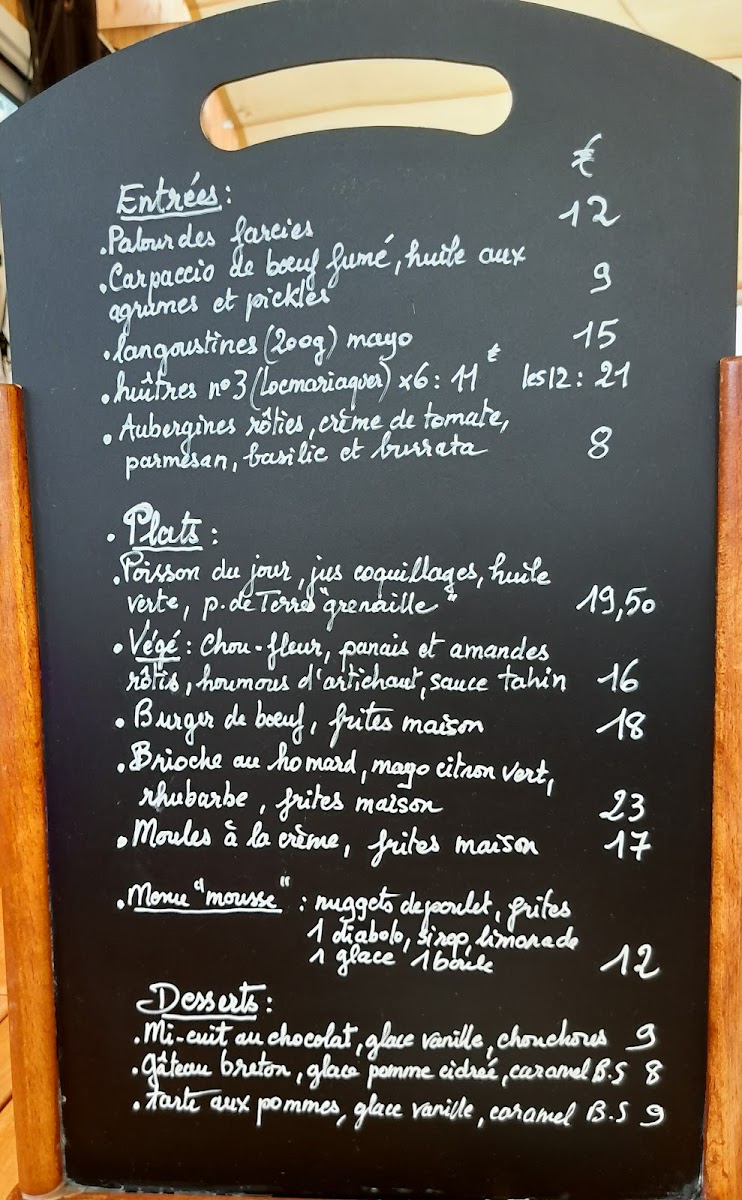 €
Entrées :
.Palourdes farcies 12
.Carpaccio de bœuf fumé, huile aux
agrumes et pickles 9
.langoustines (200g) mayo 15
.huîtres n°3 (Locmariaquer) x6 : 11 € les 12 : 21
. Aubergines rôties, crème de tomate,
parmesan, basilic et burrata 8
. Plats :
.Poisson du jour, jus coquillages, huile
verte, p. de Terres "grenaille" 19,50
. Végé : Chou-fleur, panais et amandes
rôtis, houmous d'artichaut, sauce tahin 16
. Burger de bœuf, frites maison 18
.Brioche au homard, mayo citron vert,
rhubarbe, frites maison 23
. Moules à la crème, frites maison 17
. Menu "mousse" : nuggets de poulet, frites
1 diabolo, sirop, limonade
1 glace 1 boule 12
Desserts :
.Mi-cuit au chocolat, glace vanille, chouchous 9
.Gâteau breton, glace pomme cidrée, caramel B.S 8
. tarte aux pommes, glace vanille, caramel B.S 9